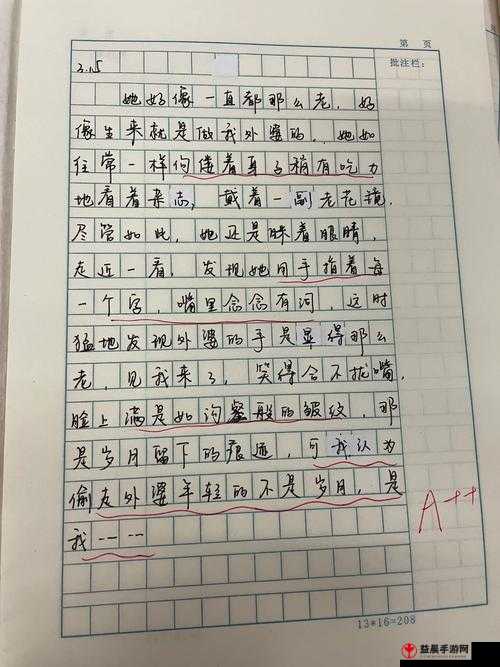 第 页
批注栏:
3.15
她好像一直都那么老,好
像生来就是做我外婆的,她如
往常一样佝偻着身子稍有吃力
地看着杂志,戴着一副老花镜,
尽管如此,她还是眯着眼睛,
走近一看,发现她用手指着每
一个字,嘴里念念有词,这时
猛地发现外婆的手是显得那么
老,见我来了,笑得合不拢嘴,
脸上满是如沟壑般的皱纹,那
是岁月留下的痕迹,可我认为
偷走外婆年轻的不是岁月,是
我----
A++
13*16=208
益晨手游网